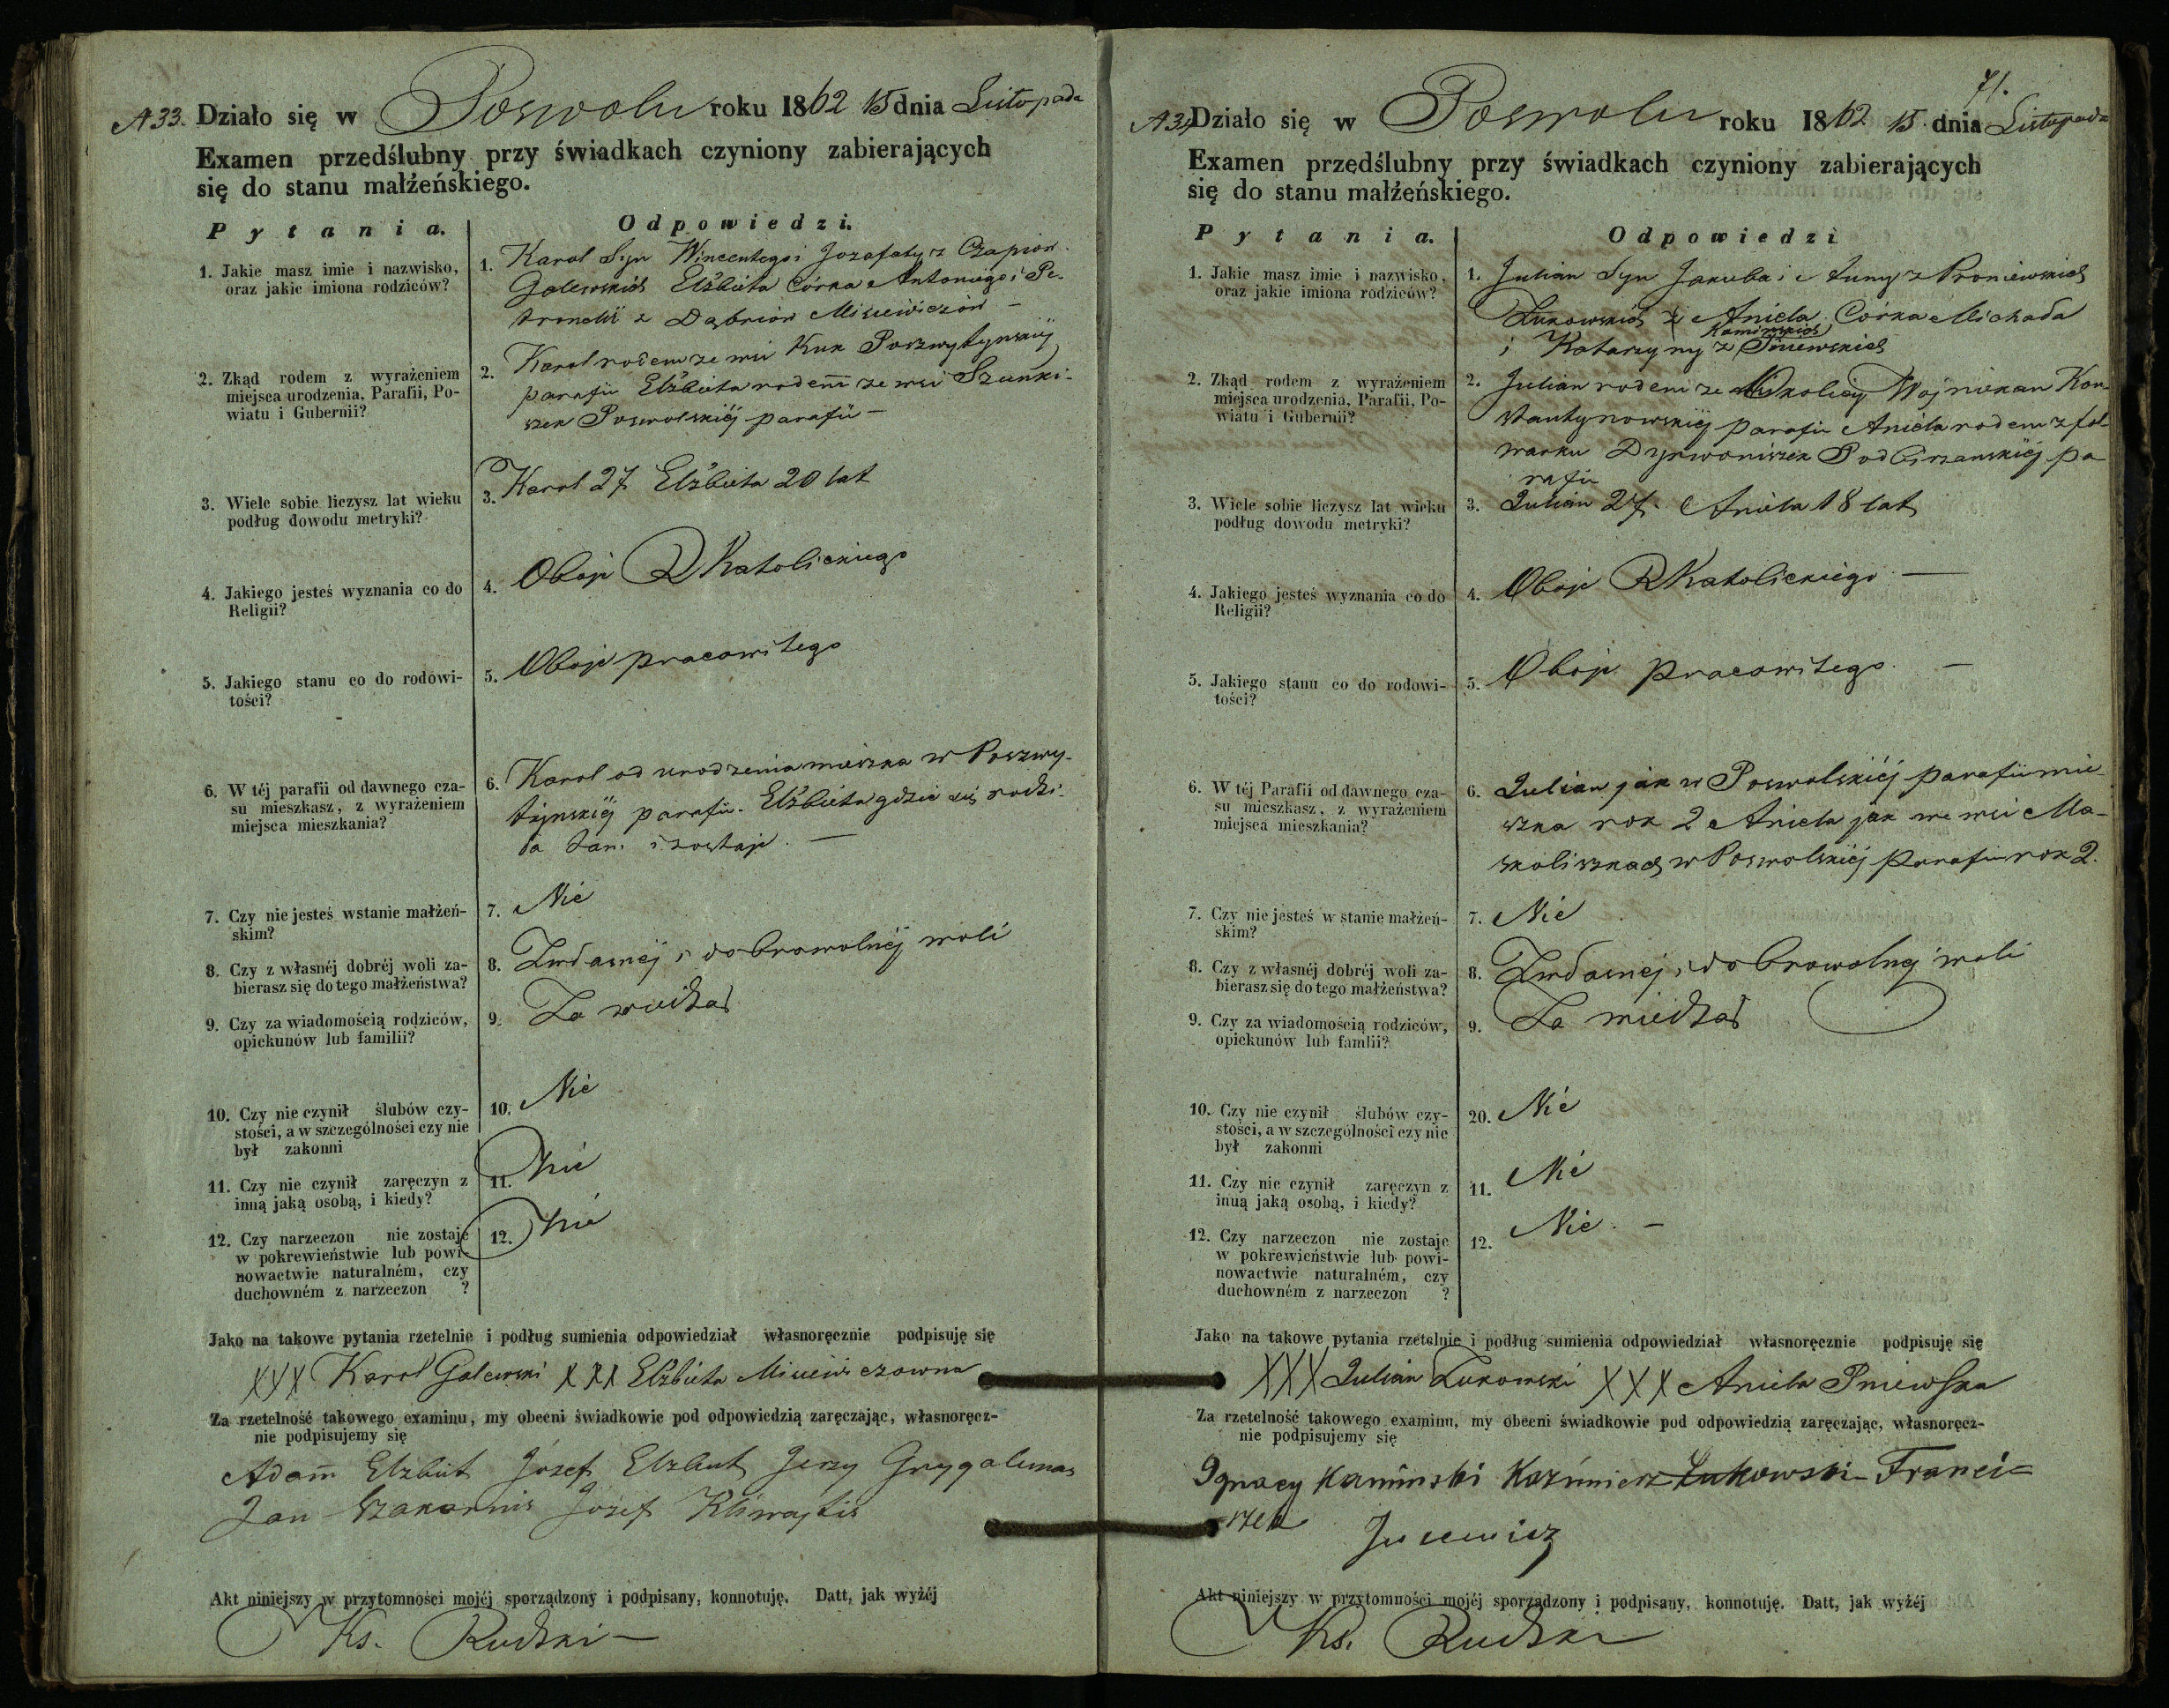 A 33. Działo się w Poswolu roku 1862 15 dnia Listopada
Examen przedślubny przy świadkach czyniony zabierających
się do stanu małżeńskiego.
Pytania. Odpowiedzi.
1. Jakie masz imie i nazwisko,
oraz jakie imiona rodziców?
1. Karol Syn Wincentego i Jozafaty z Czapiow
Galewskich Elżbieta Córka Antoniego i Pe-
tronelli z Dąbriow Misiewiczów —
2. Zkąd rodem z wyrażeniem
miejsca urodzenia, Parafii, Po-
wiatu i Gubernii?
2. Karol rodem ze wsi Kuk Poszwytynskiéj
parafii Elżbieta rodem ze wsi Szunki-
szek Poswolskiéj parafii —
3. Wiele sobie liczysz lat wieku
podług dowodu metryki?
3. Karol 27 Elżbieta 20 lat
4. Jakiego jesteś wyznania co do
Religii?
4. Oboje R Katolickiego
5. Jakiego stanu co do rodowi-
tości?
5. Oboje pracowitego
6. W téj parafii od dawnego cza-
su mieszkasz, z wyrażeniem
miejsca mieszkania?
6. Karol od urodzenia mieszka w Poszwy-
tynskiéj parafii. Elżbieta gdzie się rodzi-
ła tam i zostaje. —
7. Czy nie jesteś wstanie małżeń-
skim?
7. Nié
8. Czy z własnéj dobréj woli za-
bierasz się do tego małżeństwa?
8. Zwłasnéj i dobrowolnéj woli
9. Czy za wiadomością rodziców,
opiekunów lub familii?
9. Za wiedzą
10. Czy nie czynił ślubów czy-
stości, a w szczególności czy nie
był zakonni
10. Nié
11. Czy nie czynił zaręczyn z
inną jaką osobą, i kiedy?
11. Nié
12. Czy narzeczon nie zostaje
w pokrewieństwie lub powi-
nowactwie naturalném, czy
duchowném z narzeczon ?
12. Nié
Jako na takowe pytania rzetelnie i podług sumienia odpowiedział własnoręcznie podpisuję się
XXX Karol Galewski XXX Elżbieta Misiewiczowna
Za rzetelność takowego examinu, my obecni świadkowie pod odpowiedzią zaręczając, własnoręcz-
nie podpisujemy się
Adam Elzbut Józef Elzbut Jerzy Grygalunas
Jan Szakarnis Józef Kliwajtis
Akt niniejszy w przytomności mojéj sporządzony i podpisany, konnotuję. Datt, jak wyżéj
Ks. Rudzki —
71.
A 34 Działo się w Poswolu roku 1862 15 dnia Listopada
Examen przedślubny przy świadkach czyniony zabierających
się do stanu małżeńskiego.
Pytania. Odpowiedzi
1. Jakie masz imie i nazwisko,
oraz jakie imiona rodziców?
1. Julian Syn Jakuba i Anny z Broniewskich
Łukowskich i Aniela Córka Michała
Kaminskich
i Katarzyny z Pniewskich
2. Zkąd rodem z wyrażeniem
miejsca urodzenia, Parafii, Po-
wiatu i Gubernii?
2. Julian rodem ze Okolicy Wojniekan Kon-
stantynowskiéj parafii Aniela rodem z fol-
warku Dyrwoniszek Podbirzanskiéj pa
rafii
3. Wiele sobie liczysz lat wieku
podług dowodu metryki?
3. Julian 27. Aniela 18 lat
4. Jakiego jesteś wyznania co do
Religii?
4. Oboje R Katolickiego —
5. Jakiego stanu co do rodowi-
tości?
5. Oboje pracowitego. —
6. W téj Parafii od dawnego cza-
su mieszkasz, z wyrażeniem
miejsca mieszkania?
6. Julian jak w Poswolskiéj parafii mie-
szka rok 2 Aniela jak we wsi Ma-
skoliszkach w Poswolskiéj parafii rok 2.
7. Czy nie jesteś w stanie małżeń-
skim?
7. Nié
8. Czy z własnéj dobréj woli za-
bierasz się do tego małżeństwa?
8. Zwłasnej i dobrowolnej woli
9. Czy za wiadomością rodziców,
opiekunów lub famlii?
9. Za wiedzą
10. Czy nie czynił ślubów czy-
stości, a w szczególności czy nie
był zakonni
20. Nié
11. Czy nie czynił zaręczyn z
inną jaką osobą, i kiedy?
11. Nié
12. Czy narzeczon nie zostaje
w pokrewieństwie lub powi-
nowactwie naturalném, czy
duchowném z narzeczon ?
12. Nié. —
Jako na takowe pytania rzetelnie i podług sumienia odpowiedział własnoręcznie podpisuję się
XXX Julian Łukowski XXX Aniela Pniewska
Za rzetelność takowego examinu, my obecni świadkowie pod odpowiedzią zaręczając, własnoręcz-
nie podpisujemy się
Ignacy Kaminski Kazimierz Łukowski Franci=
szek Jucewicz
Akt niniejszy w przytomności mojéj sporządzony i podpisany, konnotuję. Datt, jak wyżéj
Ks. Rudzki